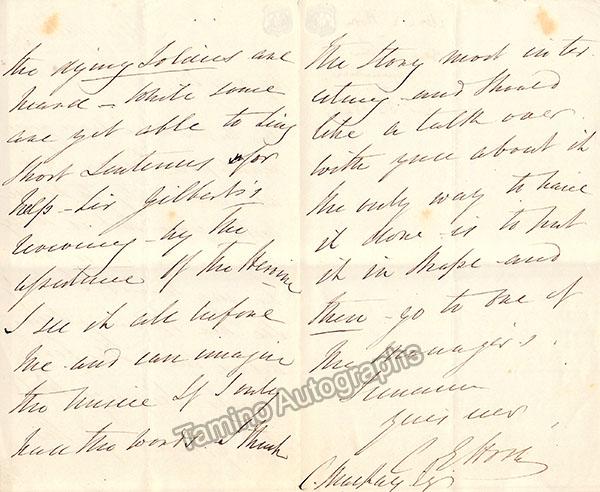 the dying Soldiers are
heard – while some
are yet able to sing
short sentences for
help – Sir Gilbert's
reviving – by the
assistance of the Heroine
I see it all before
me – and can imagine
the music if I only
had the words – I think
the story most inter
esting – and should
like a talk over
with you about it
the only way to have
it done – is to put
it in shape – and
then – go to one of
the Managers.
yours ever
C E Horn
C. Mackay Esq
Tamino Autographs